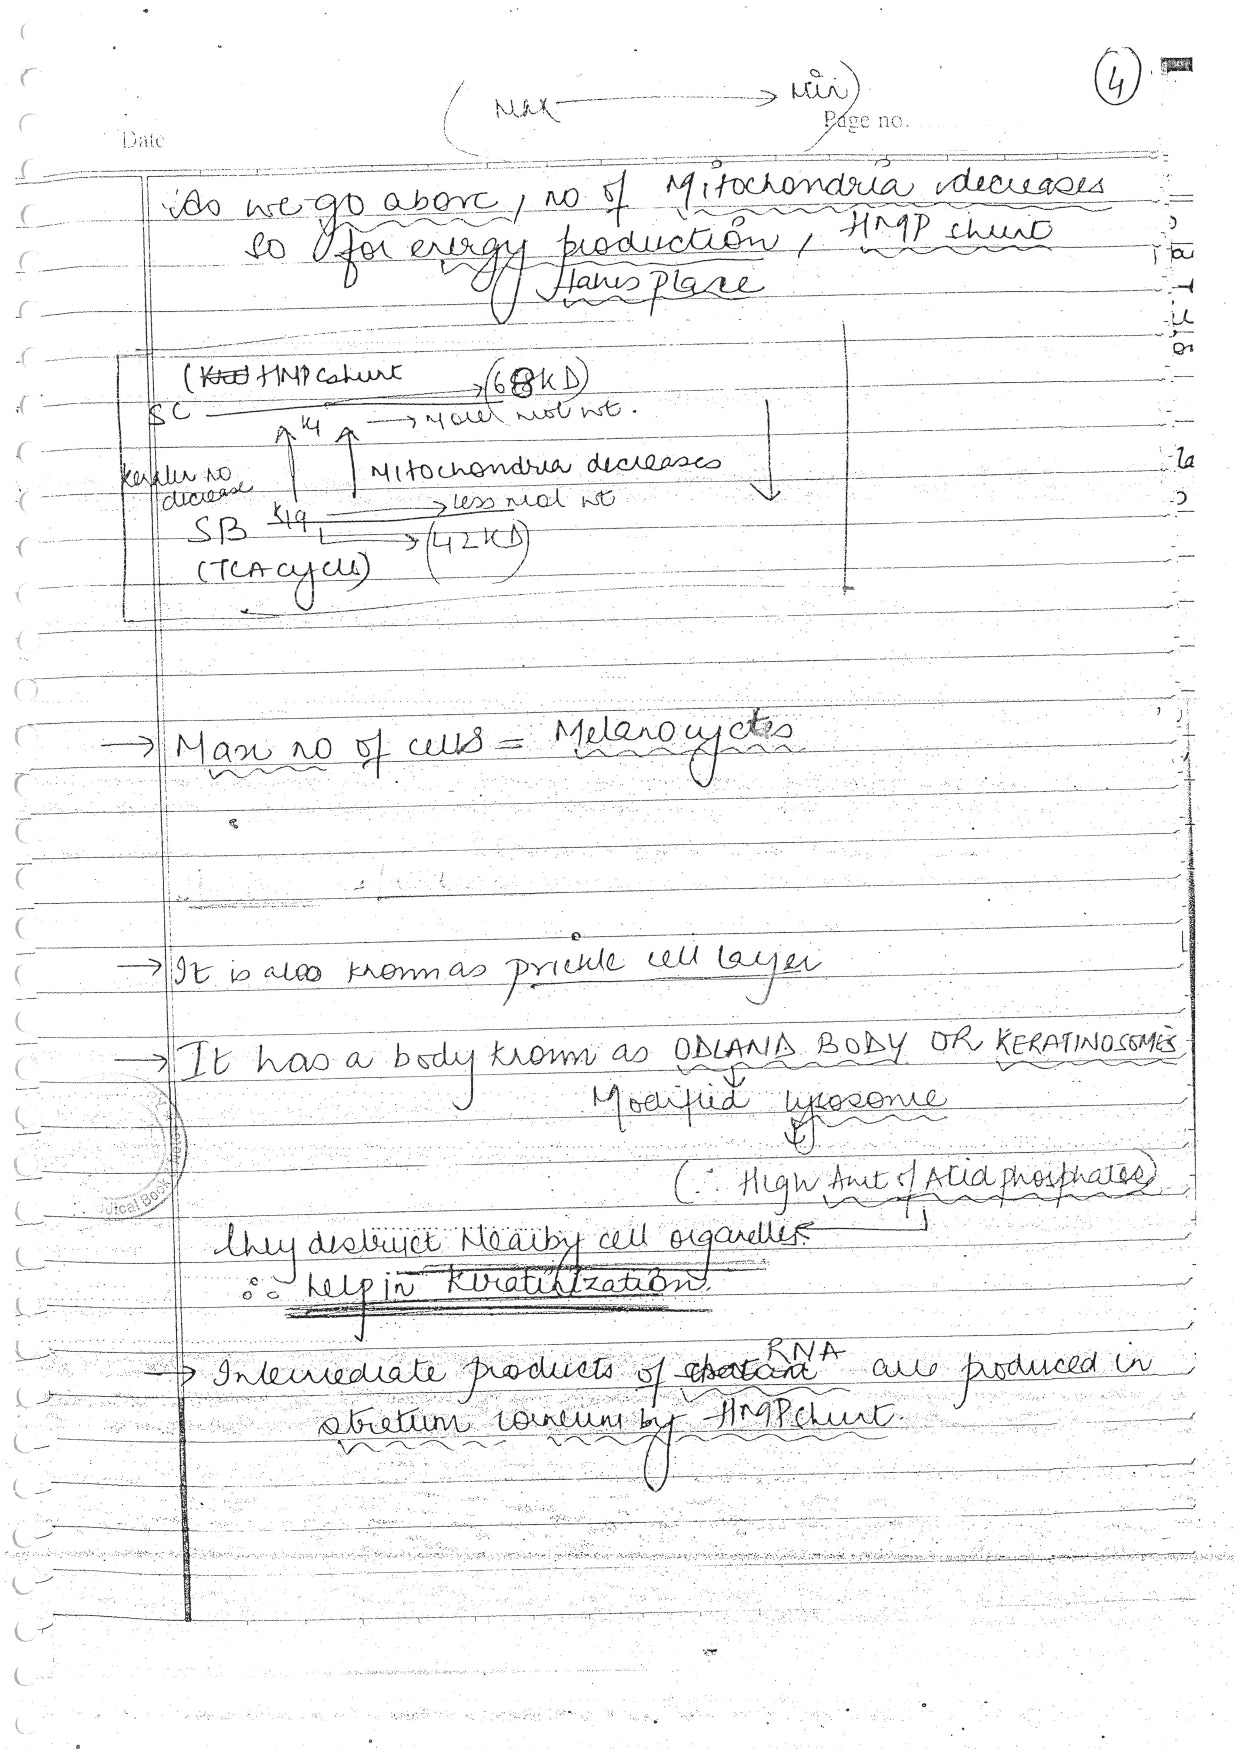 4
(Max → Min)
Date
Page no.
As we go above, no of Mitochondria decreases
so for energy production, HMP shunt
takes place
(HMP shunt → (68KD)
SC
K4 → More mol wt.
Keratin no
decrease
Mitochondria decreases
→ less mol wt
SB K19
→ (42KD)
(TCA cycle)
→ Max no of cells = Melanocytes
→ It is also known as prickle cell layer
→ It has a body known as ODLAND BODY OR KERATINOSOMES
Modified lysosome
(∵ High Amt of Acid phosphates)
they destruct Nearby cell organelles.
∴ help in Keratinization.
→ Intermediate products of RNA are produced in
stratum corneum by HMP shunt.